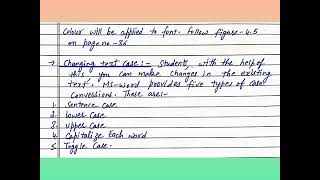 Colour will be applied to font. Follow figure-4.5
on page no-56
→ Changing text case:- Students, with the help of
this you can make changes in the existing
text. Ms-word provides five types of case
Conversions. These are:-
1. Sentence case
2. lower case
3. upper case
4. Capitalize Each word
5. Toggle Case.